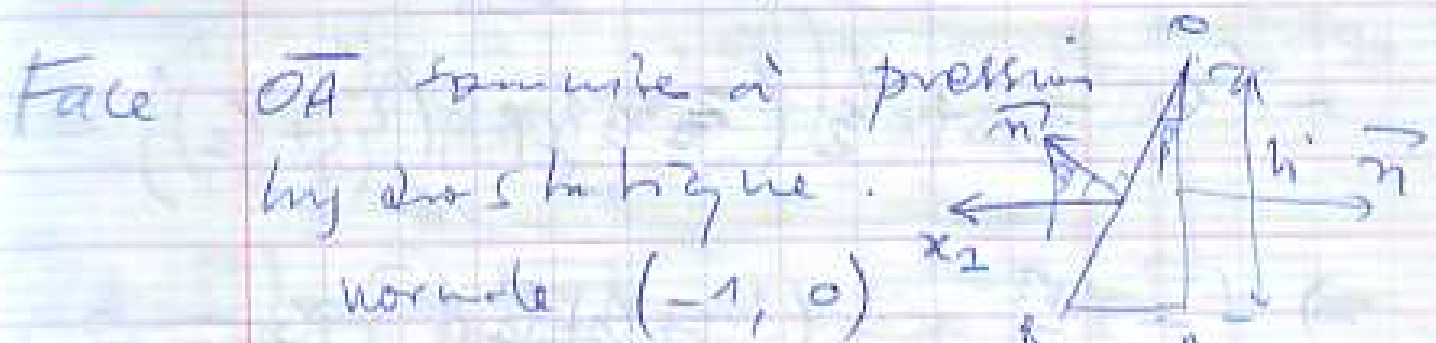 Face OA soumise à pression
hydrostatique.
normale (-1, 0)
O
n
h
n
x2